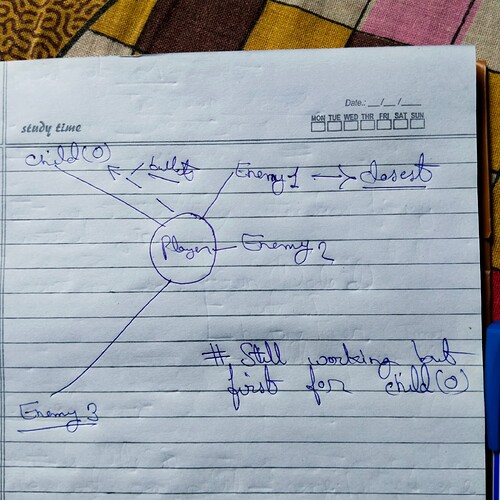 Date.: __/__/____
MON TUE WED THR FRI SAT SUN
study time
child(0)
bullet
Enemy 1 → closest
Player
Enemy 2
# Still working but
first for child(0)
Enemy 3